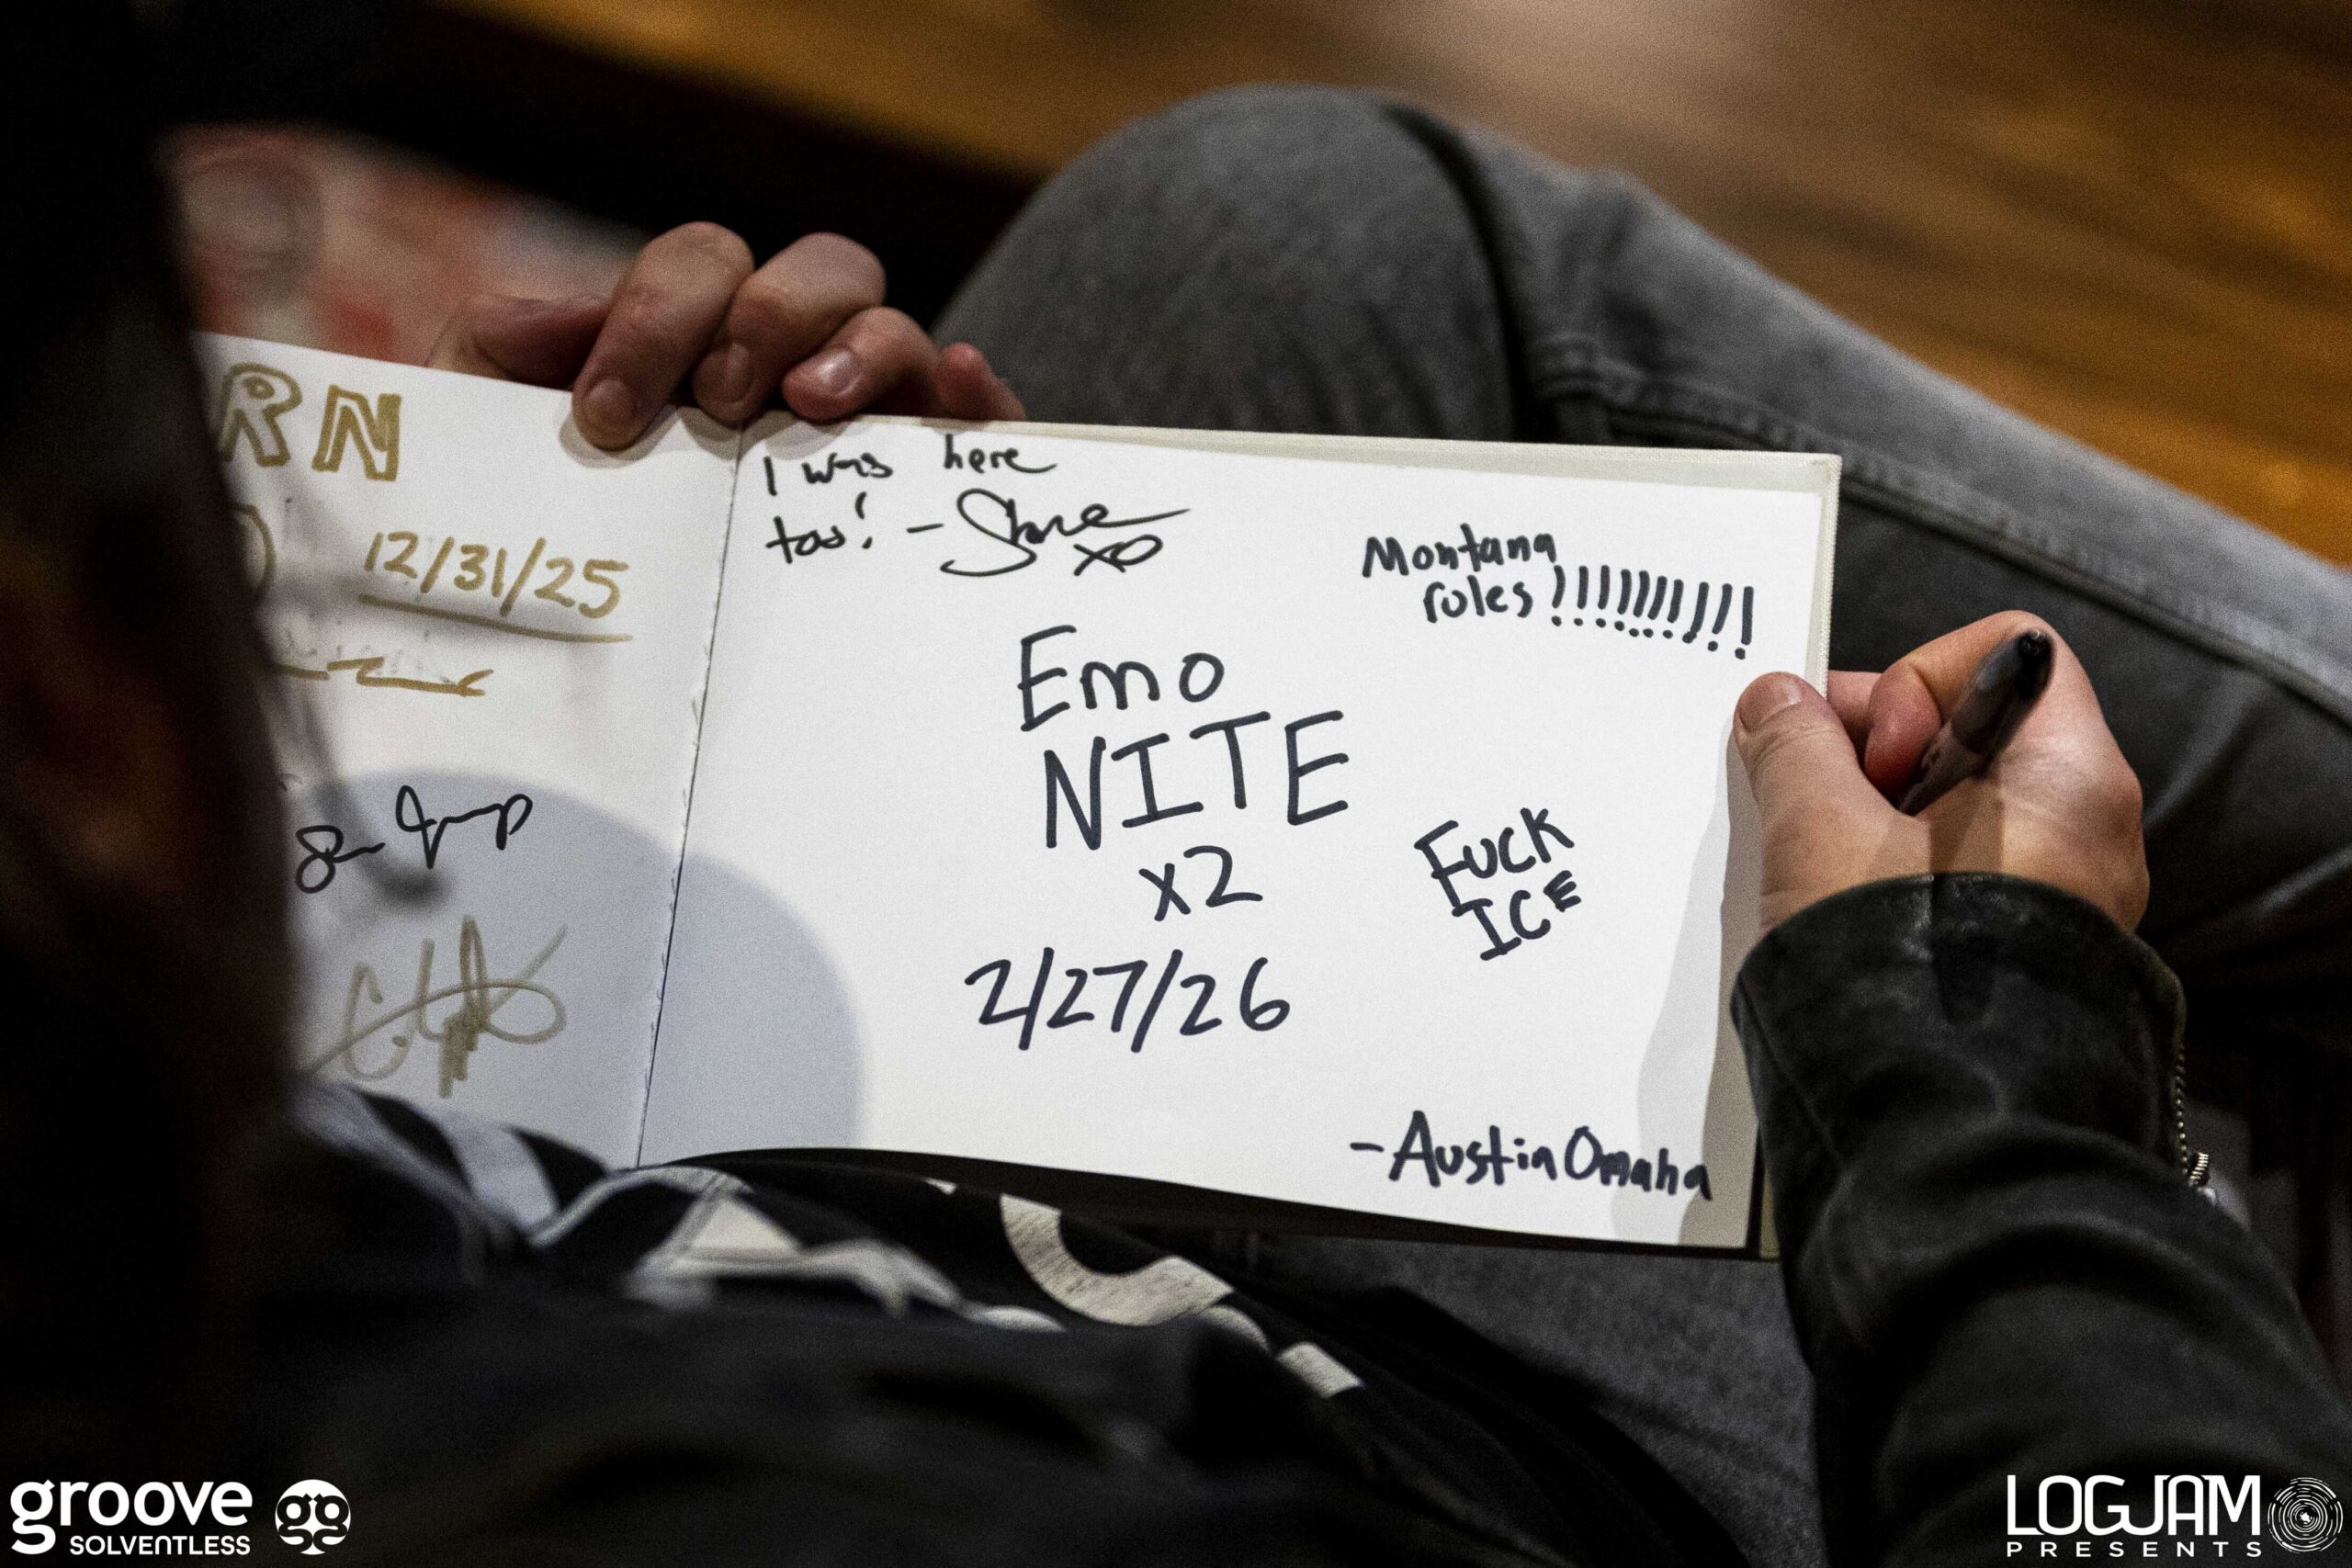 RN
12/31/25
I was here
too! -Shane
xo
Montana
rules!!!!!!!!!!
Emo
NITE
x2
2/27/26
FUCK
ICE
-Austin Omaha
groove
SOLVENTLESS
LOGJAM
PRESENTS